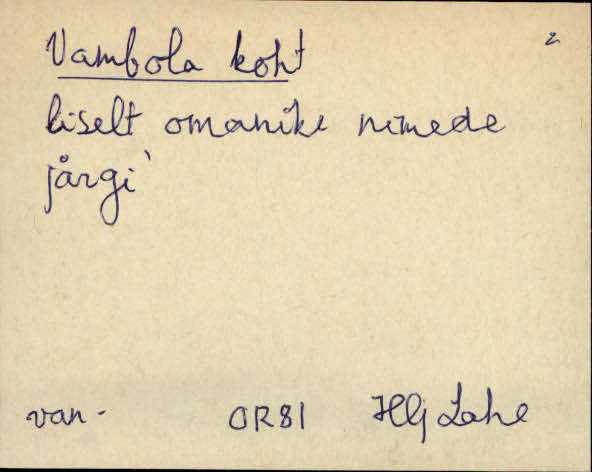 Vambola koht 2
liselt omanike nimede
järgi
van. OR81 HLj Lahe